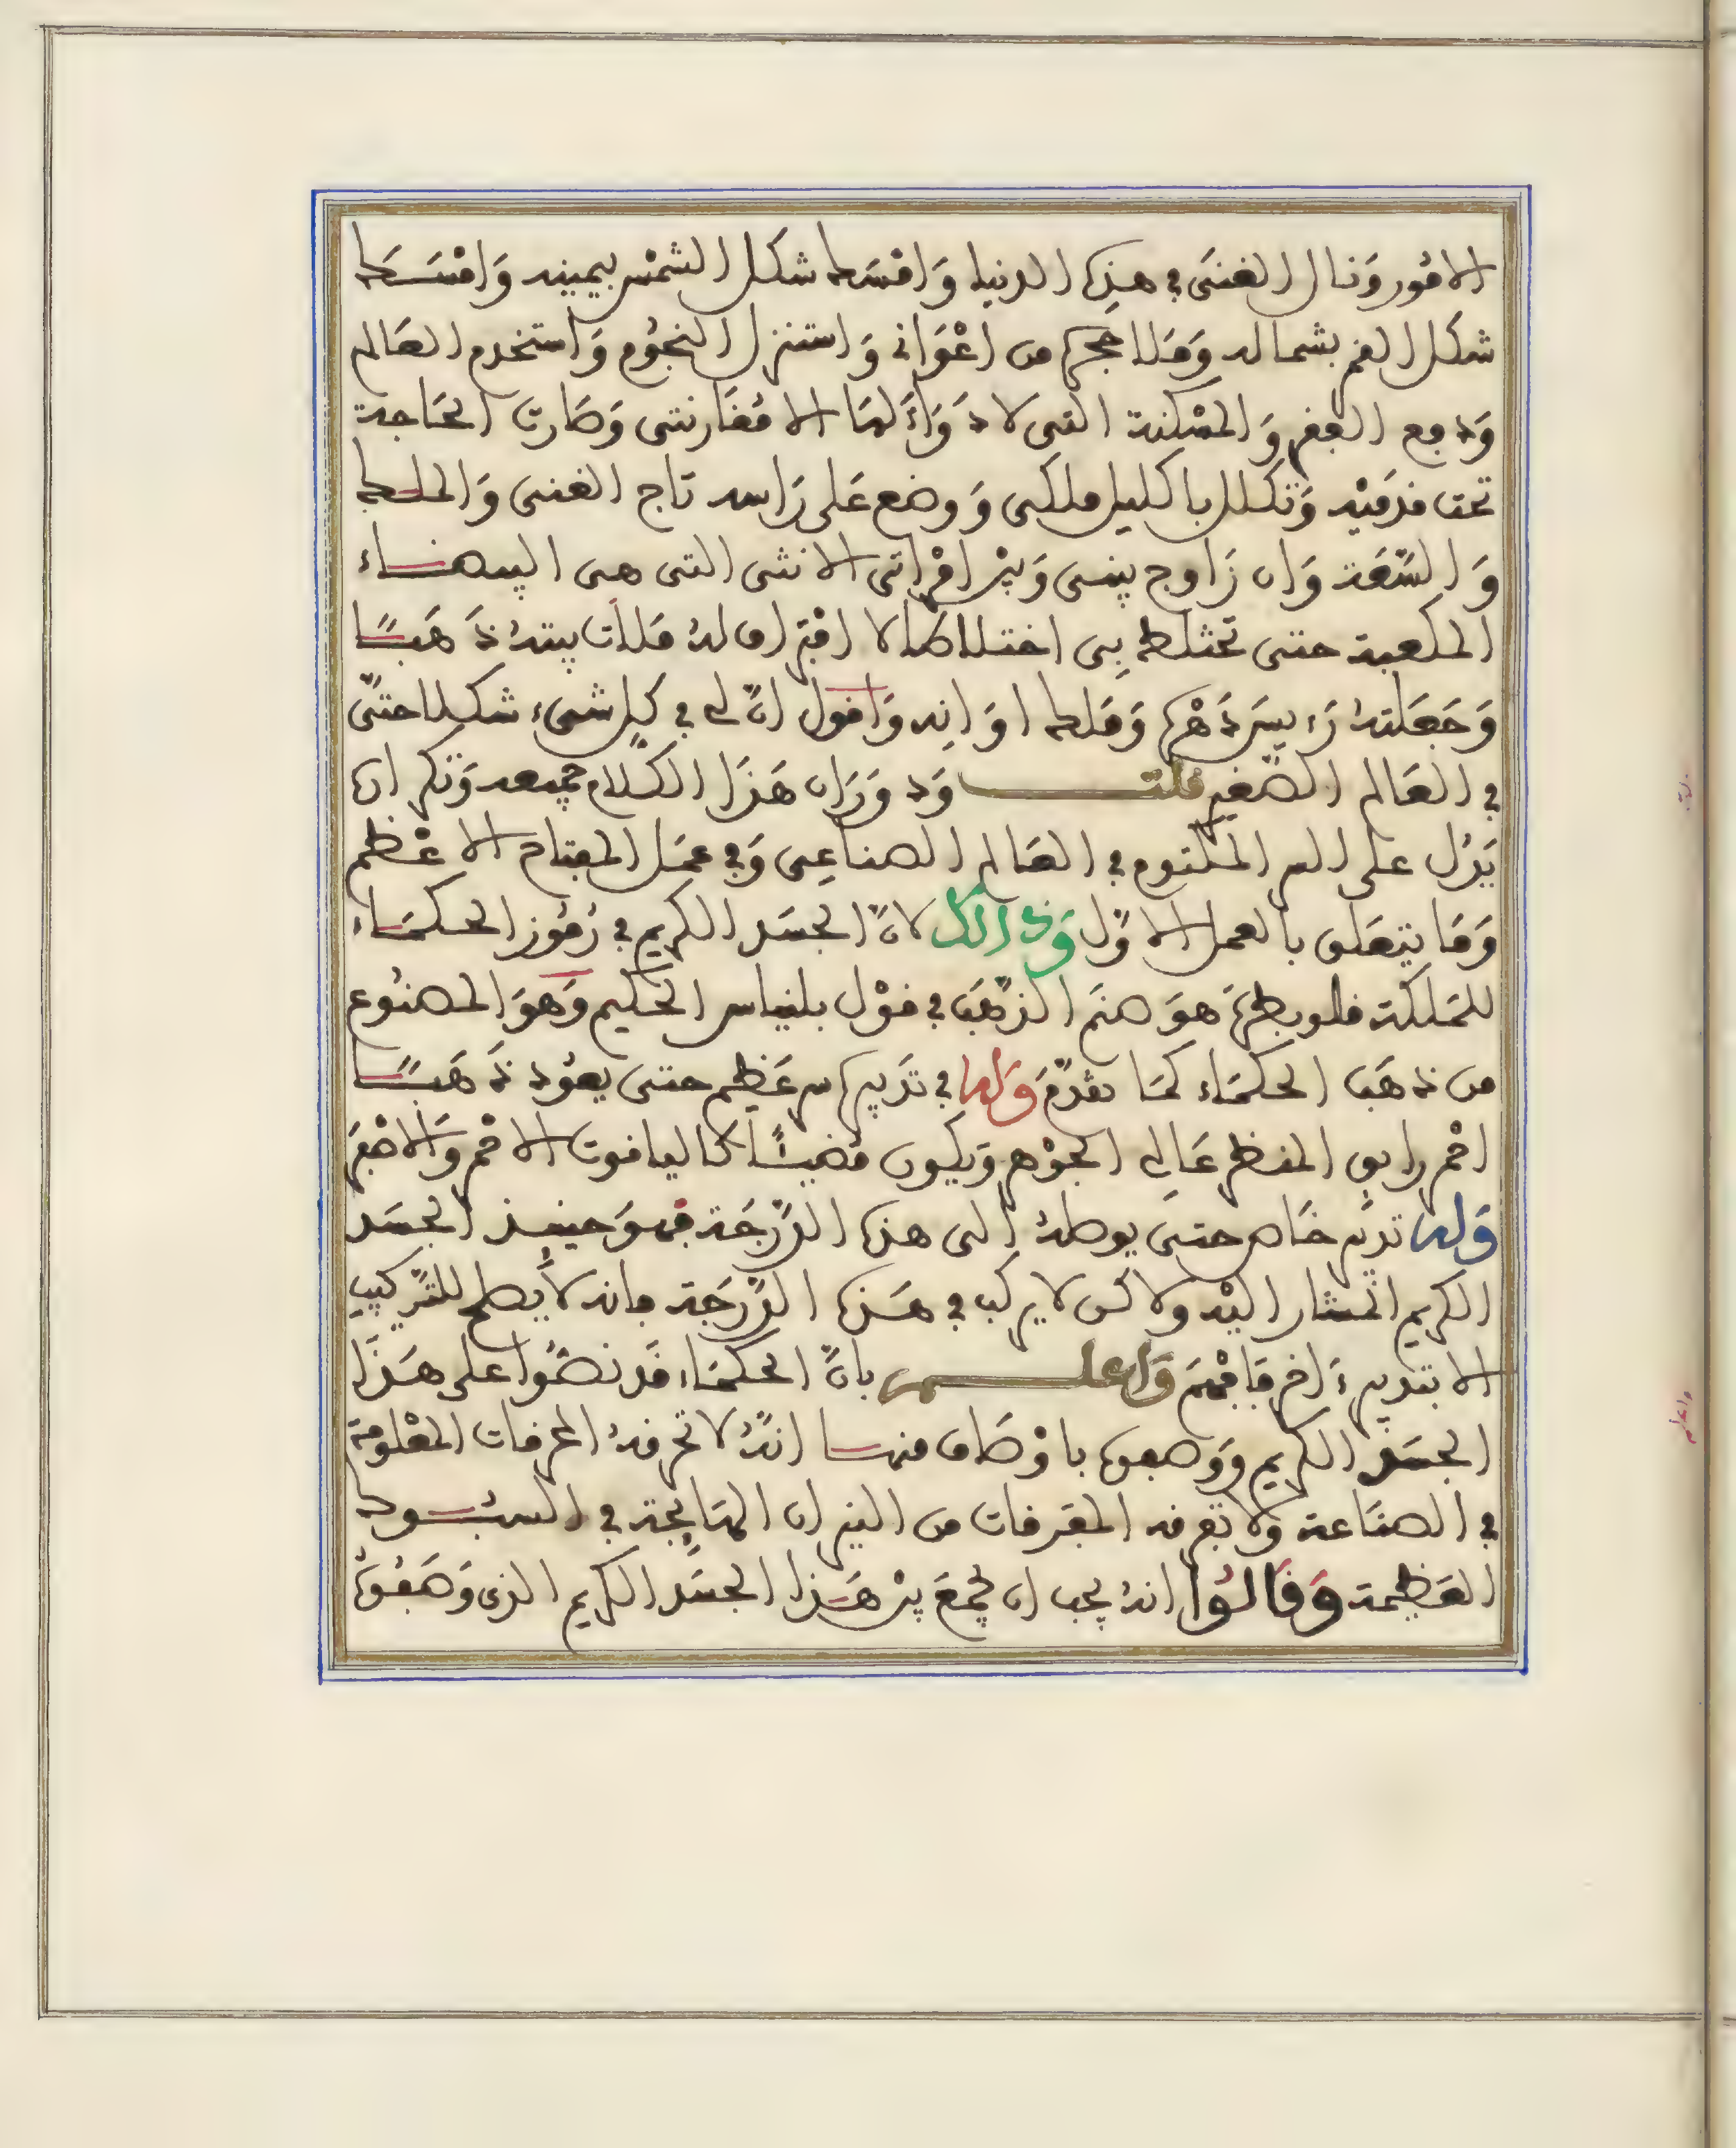 الامُور وَنال الغنَى في هذِه الدنيا وَامْسَك شكل الشمْس بيمينه وَامْسَـــك
شكل القمر بشماله وَمَلا حجره من اعْوَانى وَاستنزل النجُوم وَاستخدم العَالم
وَدفع الفقر وَالمسْكنة التى لا دَوَآءَ لهَا الا مُفَارقتى وَصَارت الحَاجة
تحت قدمَيْه وَتكلل باكليل ملكى وَوضع عَلى رَاسه تَاج الغنى وَالملك
وَالسّعَة وَان زَاوج بينى وَبيْن امْرَاتى الانثى التى هى البيضاء
المكعبة حتى تختلط بِى اختلاطا لا افتراق لهُ قلّت بيته ذَهَبًا
وَجَعَلتهُ رَءيسَ دَهْره وَمَلك اوَانه وَاقول انّ لى في كل شىء شكلا حتّى
في العَالم الصّغير قلت وَدوَرَان هَذَا الكلام جميعه وَتكراره
يَدُل على السر المكتوم في العَالم الصناعِى وَفي عمَل المفتاح الاعْظم
وَمَا يتعَلق بالعمل الاوّل وَذالك لانّ الجسَد الكريم في رُمُوز الحكمَاء
للمَلكة قلوبطرَة هوَ صنَم الذهَب في قوْل بلنياس الحَكيم وَهوَ المصنُوع
من ذهَب الحكمَاء كمَا تقدّمَ وَله في تدبيره سر عَظيم حتى يعُود ذَهَبًا
احْمر رايق المنظر عَالى الجوْهر وَيكون مُضيئًا كالياقوت الاحْمر وَالاصْفَر
وَله تدبير خَاص حتى يوصلهُ الى هذه الدّرَجَة فهوَ حينئذ الجسَد
الكريم المشار اليْه ولاكن لا يركب في هَذه الدّرَجَة فانه لا يصلح للتّركيب
الا بتدبير ءَاخر فَافْهَمْ وَاعلـــم بانّ الحكمَاء قَد نصّوا على هَذَا
الجسَد الكريم وَوَصفوه باوْصَاف منهـا انّهُ لا تحرقهُ المحرقات المعْلومة
في الصنَاعة وَلا تفرقه المفَرقات من النيران الهَايجَة في السُبُـــوك
العَظِيمة وَقَالُوا انهُ يجب ان يجْمعَ بيْن هَذا الجسَد الكريم الذى وَصَفُوهُ